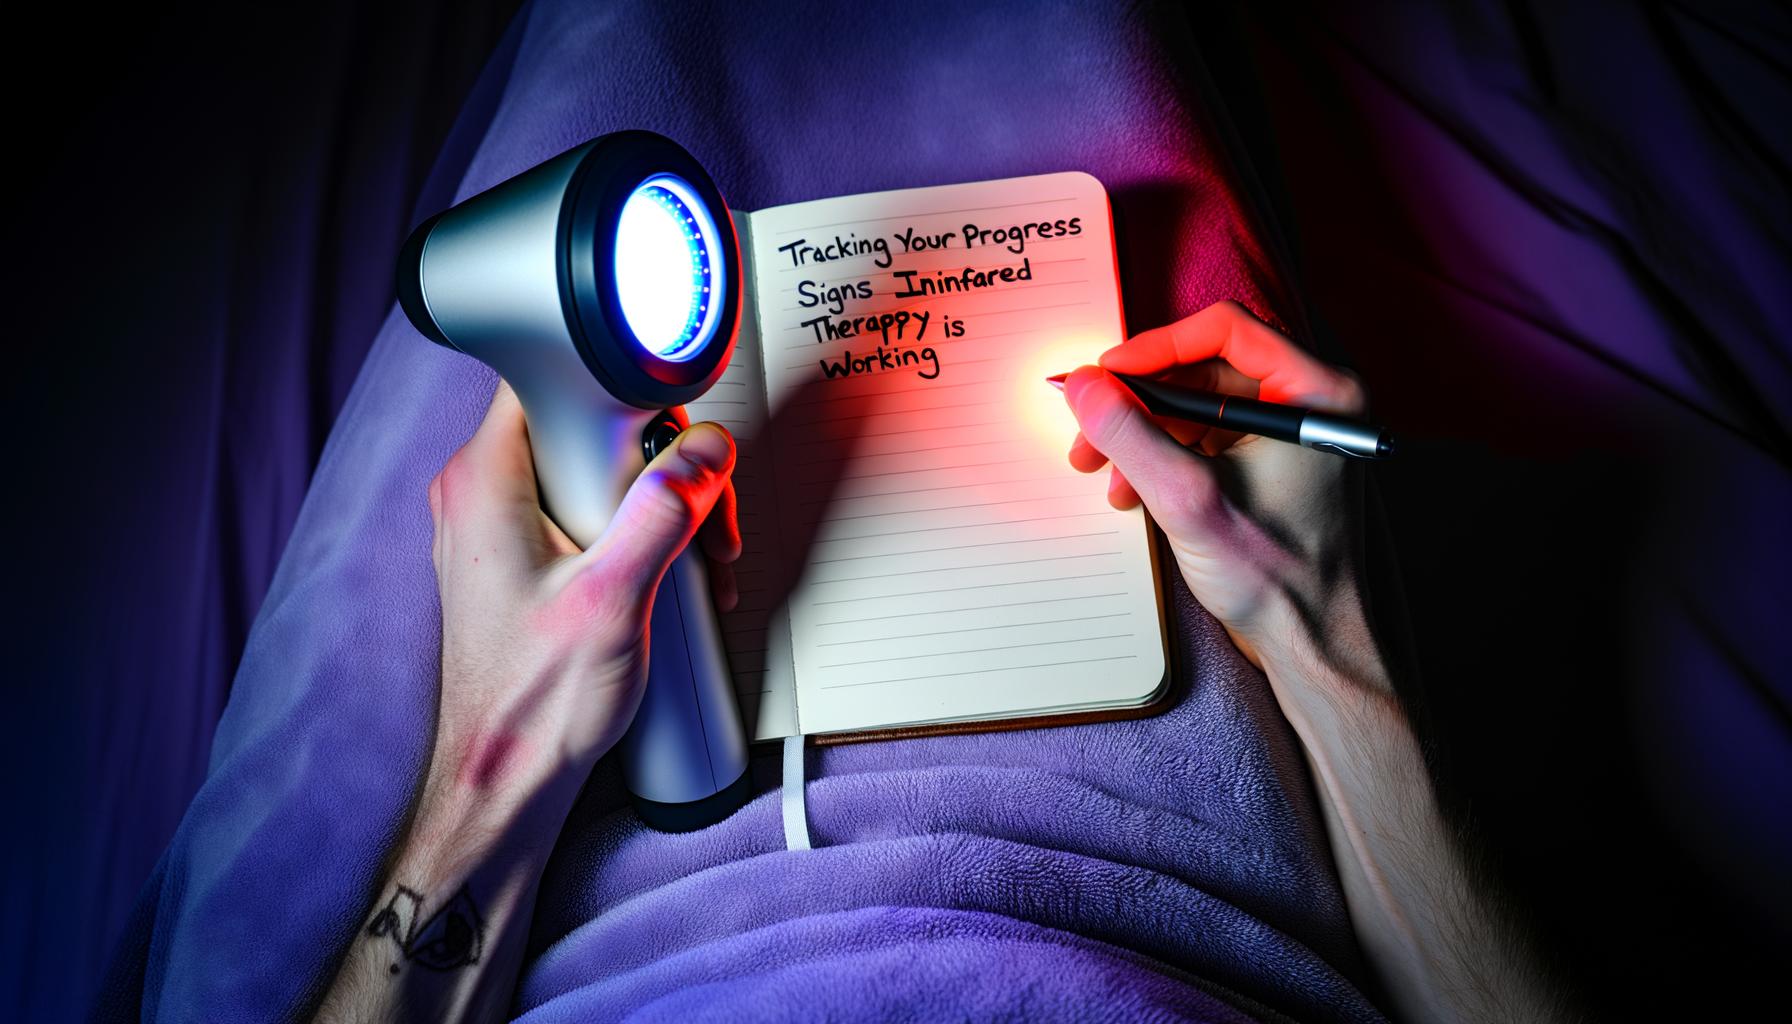 Tracking Your Progress
Signs Ininfared
Therappy is
Working